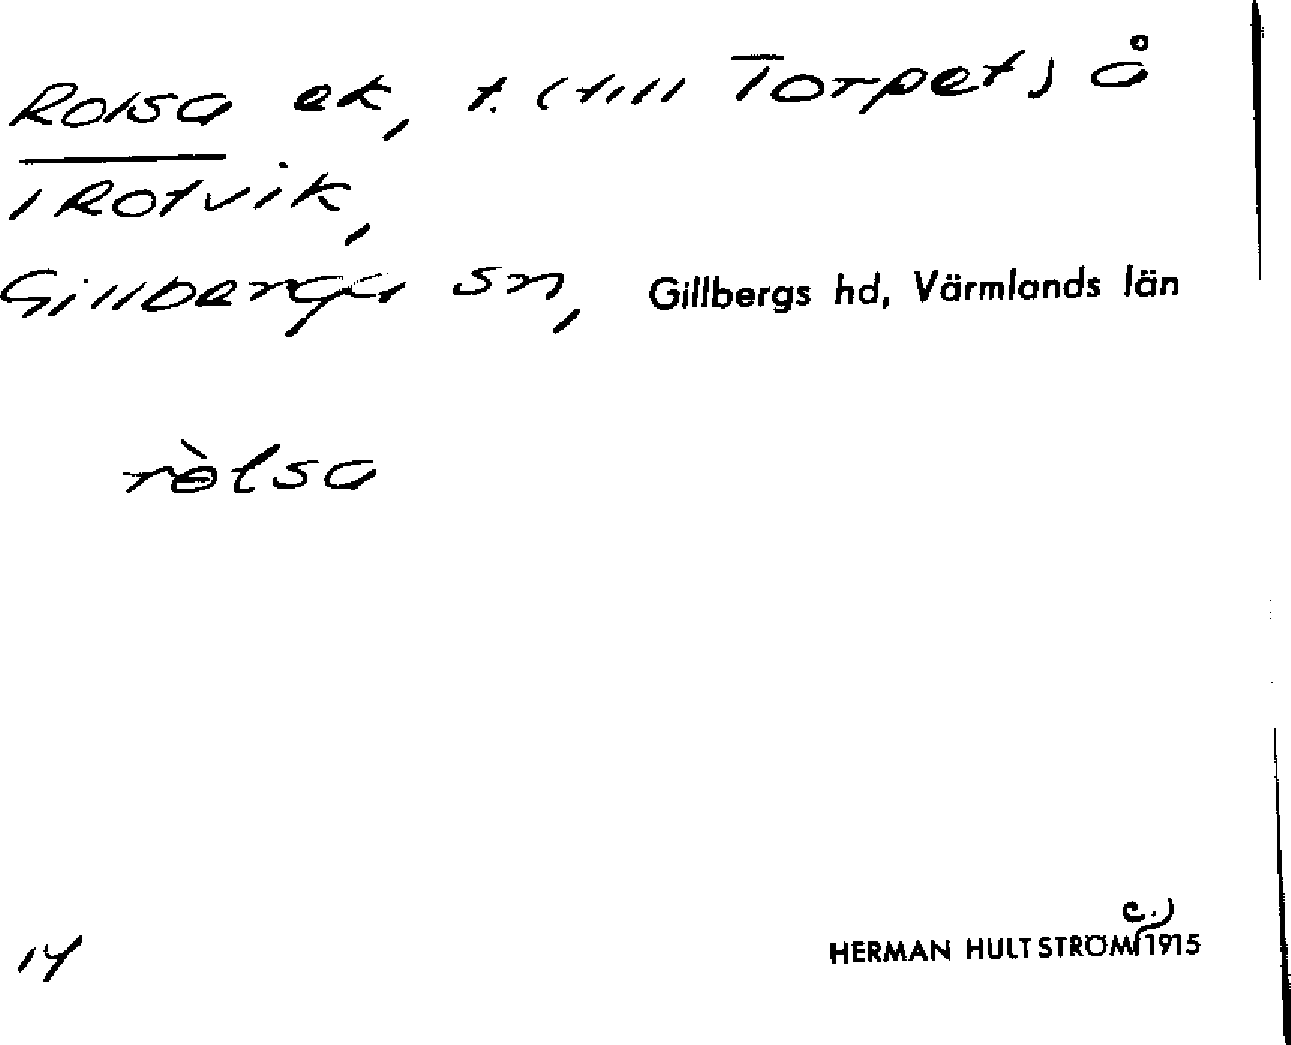 Rolsa ek, t. (till Torpet) å
i Rotvik,
Gillberga sn, Gillbergs hd, Värmlands län
rèlsa
14
HERMAN HULTSTRÖM c.) 1915